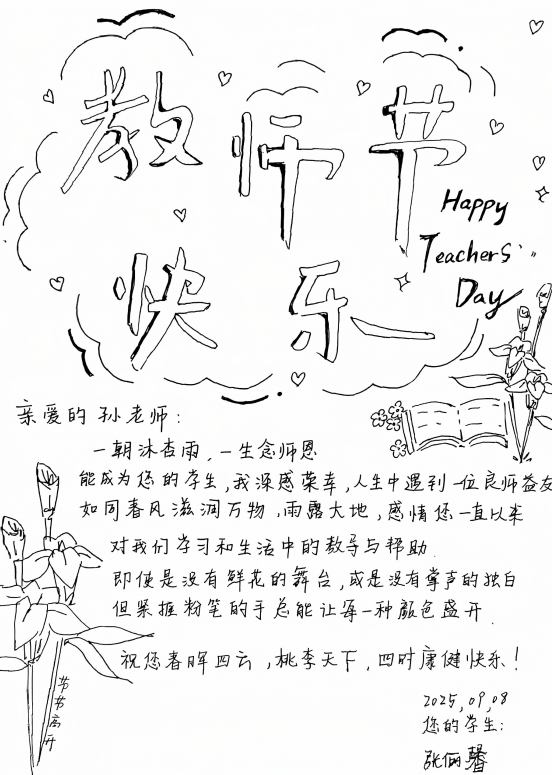 教师节
Happy
Teachers'
Day
快乐
亲爱的 孙老师:
一朝沐杏雨,一生念师恩
能成为您的学生,我深感荣幸,人生中遇到一位良师益友
如同春风滋润万物,雨露大地,感情您一直以来
对我们学习和生活中的教导与帮助.
即使是没有鲜花的舞台,或是没有掌声的独白
但紧握粉笔的手总能让每一种颜色盛开.
祝您春晖四云,桃李天下,四时康健快乐!
节节高开
2025,09,08
您的学生:
张俪馨